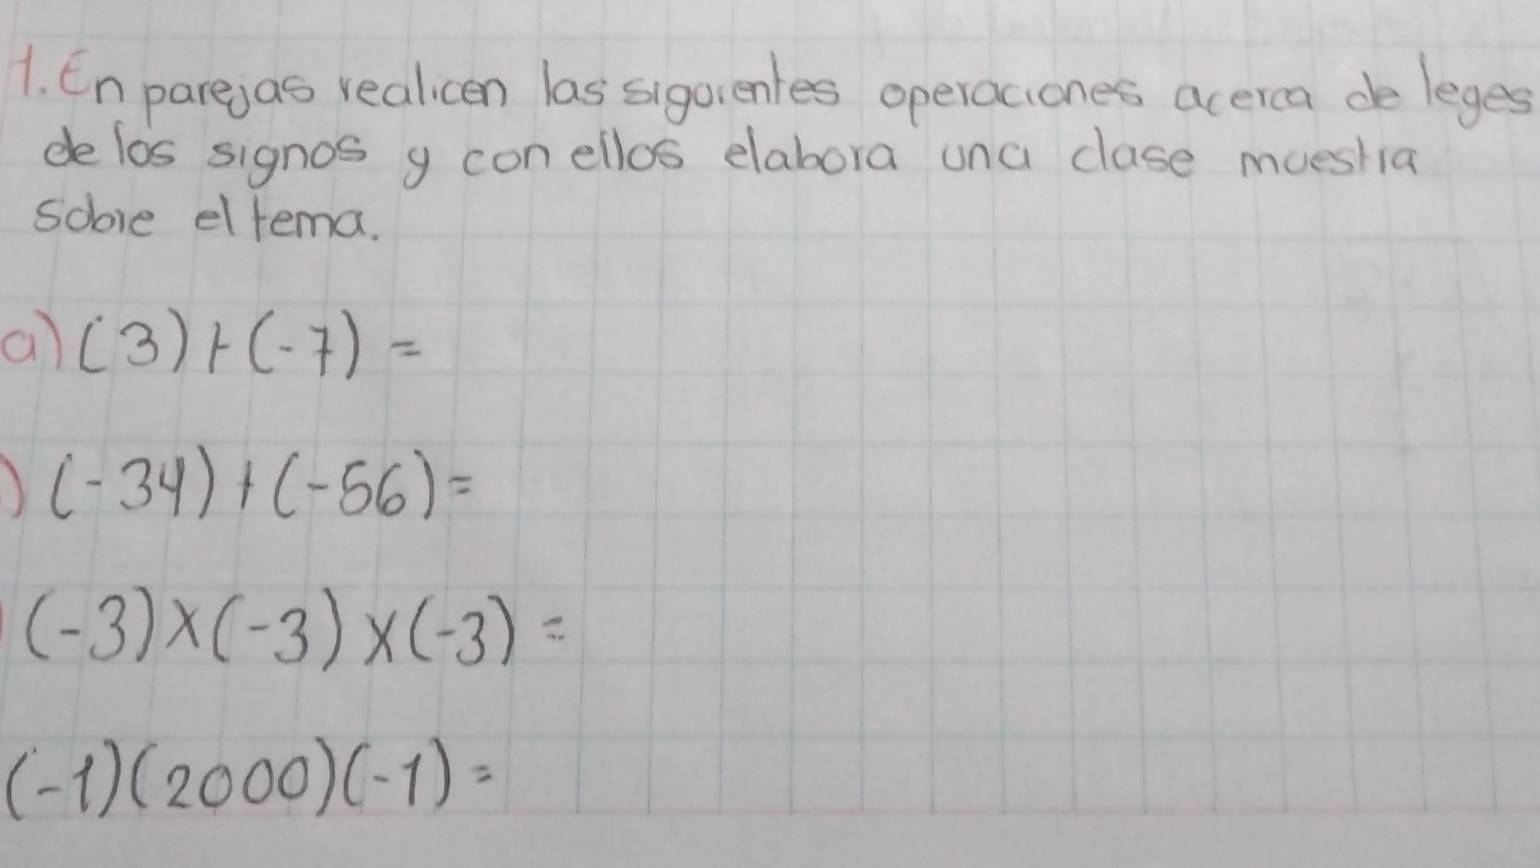 1. En parejas realicen las siguientes operaciones acerca de leges
de los signos y con ellos elabora una clase muestra
sobre el tema.
a) (3)+(-7) =
) (-34)+(-56)=
) (-3)×(-3)×(-3) =
(-1)(2000)(-1) =